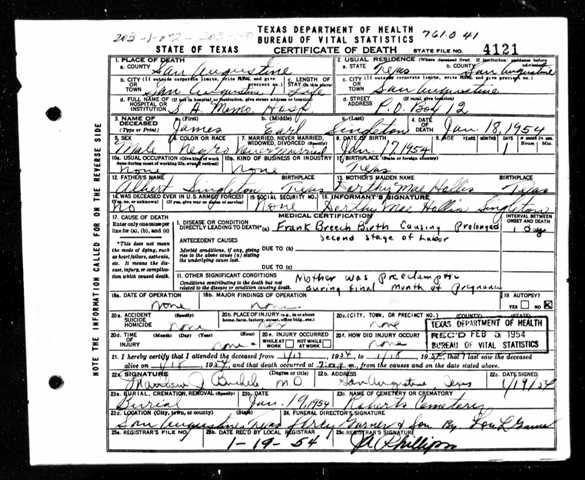 TEXAS DEPARTMENT OF HEALTH
BUREAU OF VITAL STATISTICS
761.0 41
STATE OF TEXAS
CERTIFICATE OF DEATH
STATE FILE NO. 4121
1. PLACE OF DEATH
2. USUAL RESIDENCE (Where deceased lived. If institution: residence before admission)
a. COUNTY San Augustine
a. STATE Texas
b. COUNTY San Augustine
b. CITY (If outside corporate limits, write RURAL and give precinct no.)
c. LENGTH OF STAY (in this place)
c. CITY (If outside corporate limits, write RURAL and give precinct no.)
San Augustine 1 Life
San Augustine
d. FULL NAME OF HOSPITAL OR INSTITUTION (If not in hospital or institution, give street address or location)
S A Memo Hosp
d. STREET ADDRESS P.O. Box 12
3. NAME OF DECEASED (Type or Print)
a. (First) James
b. (Middle) Earl
c. (Last) Singleton
4. DATE OF DEATH Jan 18, 1954
5. SEX Male
6. COLOR OR RACE Negro
7. MARRIED, NEVER MARRIED, WIDOWED, DIVORCED (Specify) Never Married
8. DATE OF BIRTH Jan 17 1954
9. AGE YEARS MONTHS DAYS 1
10a. USUAL OCCUPATION None
10b. KIND OF BUSINESS OR INDUSTRY None
11. BIRTHPLACE (State or foreign country) Texas
12. FATHER'S NAME Albert Singleton Texas
13. MOTHER'S MAIDEN NAME Dorthy Mae Hollis Texas
14. WAS DECEASED EVER IN U.S. ARMED FORCES? No
15. SOCIAL SECURITY NO. None
16. INFORMANT'S SIGNATURE Dorthy Mae Hollis Singleton
17. CAUSE OF DEATH
Enter only one cause per line for (a), (b), and (c)
MEDICAL CERTIFICATION
INTERVAL BETWEEN ONSET AND DEATH
I. DISEASE OR CONDITION DIRECTLY LEADING TO DEATH (a) Frank Breech Birth Causing Prolonged 1 Day
Second stage of Labor
ANTECEDENT CAUSES
Morbid conditions, if any, giving rise to the above cause (a) stating the underlying cause last.
DUE TO (b)
DUE TO (c)
*This does not mean the mode of dying, such as heart failure, asthenia, etc. It means the disease, injury, or complication which caused death.
II. OTHER SIGNIFICANT CONDITIONS
Conditions contributing to the death but not related to the disease or condition causing death.
Mother was Preeclamptic
during final Month of Pregnancy
18a. DATE OF OPERATION None
18b. MAJOR FINDINGS OF OPERATION
19. AUTOPSY YES NO
20a. ACCIDENT SUICIDE HOMICIDE none
20b. PLACE OF INJURY
20c. (CITY, TOWN, OR PRECINCT NO.) (COUNTY) (STATE) none
20d. TIME OF INJURY
20e. INJURY OCCURRED WHILE AT WORK NOT WHILE AT WORK
20f. HOW DID INJURY OCCUR? none
TEXAS DEPARTMENT OF HEALTH
REC'D FEB 5 1954
BUREAU OF VITAL STATISTICS
21. I hereby certify that I attended the deceased from 1/17 1954, to 1/18 1954, that I last saw the deceased
alive on 1/18 1954, and that death occurred at
22a. SIGNATURE (Degree or title) M D
22b. ADDRESS San Augustine Texas
22c. DATE SIGNED 1/19/54
23a. BURIAL, CREMATION, REMOVAL (Specify) Burial
23b. DATE Jan. 19, 1954
23c. NAME OF CEMETERY OR CREMATORY Roberts Cemetery
23d. LOCATION (City, town, or county) (State) San Augustine, Texas
24. FUNERAL DIRECTOR'S SIGNATURE
25a. REGISTRAR'S FILE NO.
25b. DATE REC'D BY LOCAL REGISTRAR 1-19-54
25c. REGISTRAR'S SIGNATURE
NOTE THE INFORMATION CALLED FOR ON THE REVERSE SIDE